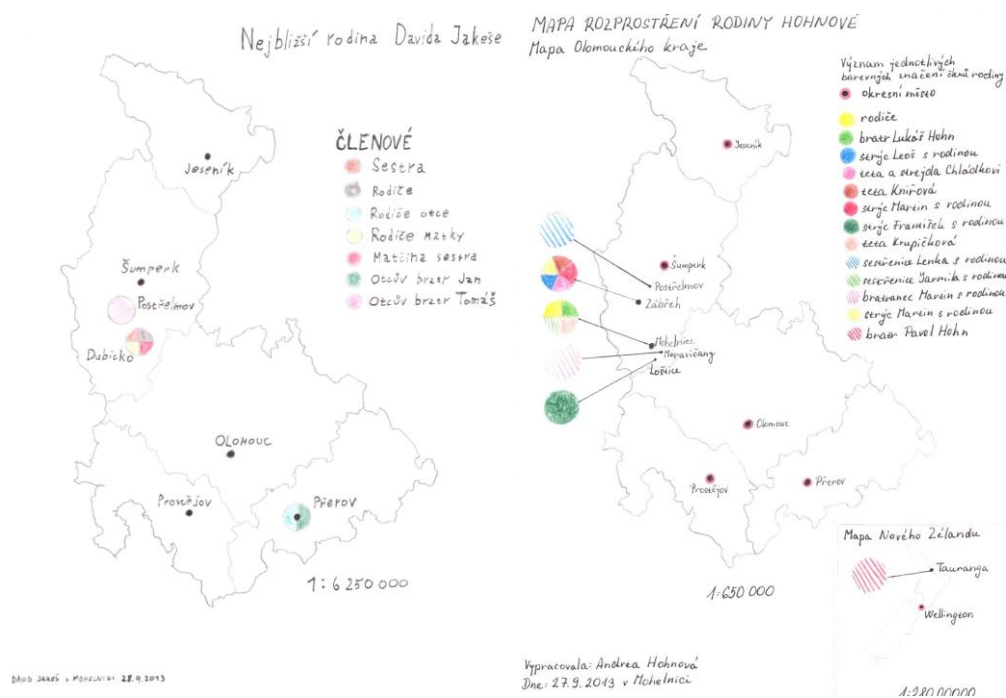 Nejbližší rodina Davida Jakeše
Jeseník
Šumperk
Postřelmov
Dubicko
OLOMOUC
Prostějov
Přerov
ČLENOVÉ
Sestra
Rodiče
Rodiče otce
Rodiče matky
Matčina sestra
Otcův bratr Jan
Otcův bratr Tomáš
1:6 250 000
DAVID JAKEŠ V MOHELNICI 28.9.2013
MAPA ROZPROSTŘENÍ RODINY HOHNOVÉ
Mapa Olomouckého kraje
Jeseník
Šumperk
Postřelmov
Zábřeh
Mohelnice
Moravičany
Loštice
Olomouc
Prostějov
Přerov
Význam jednotlivých
barevných značení členů rodiny
okresní místo
rodiče
bratr Lukáš Hohn
strýc Leoš s rodinou
teta a strejda Chládkovi
teta Knířová
strýc Martin s rodinou
strýc František s rodinou
teta Krupičková
sestřenice Lenka s rodinou
sestřenice Jarmila s rodinou
bratranec Martin s rodinou
strýc Martin s rodinou
bratr Pavel Hohn
1:650 000
Mapa Nového Zélandu
Tauranga
Wellington
1:280 00000
Vypracovala: Andrea Hohnová
Dne: 27.9.2013 v Mohelnici